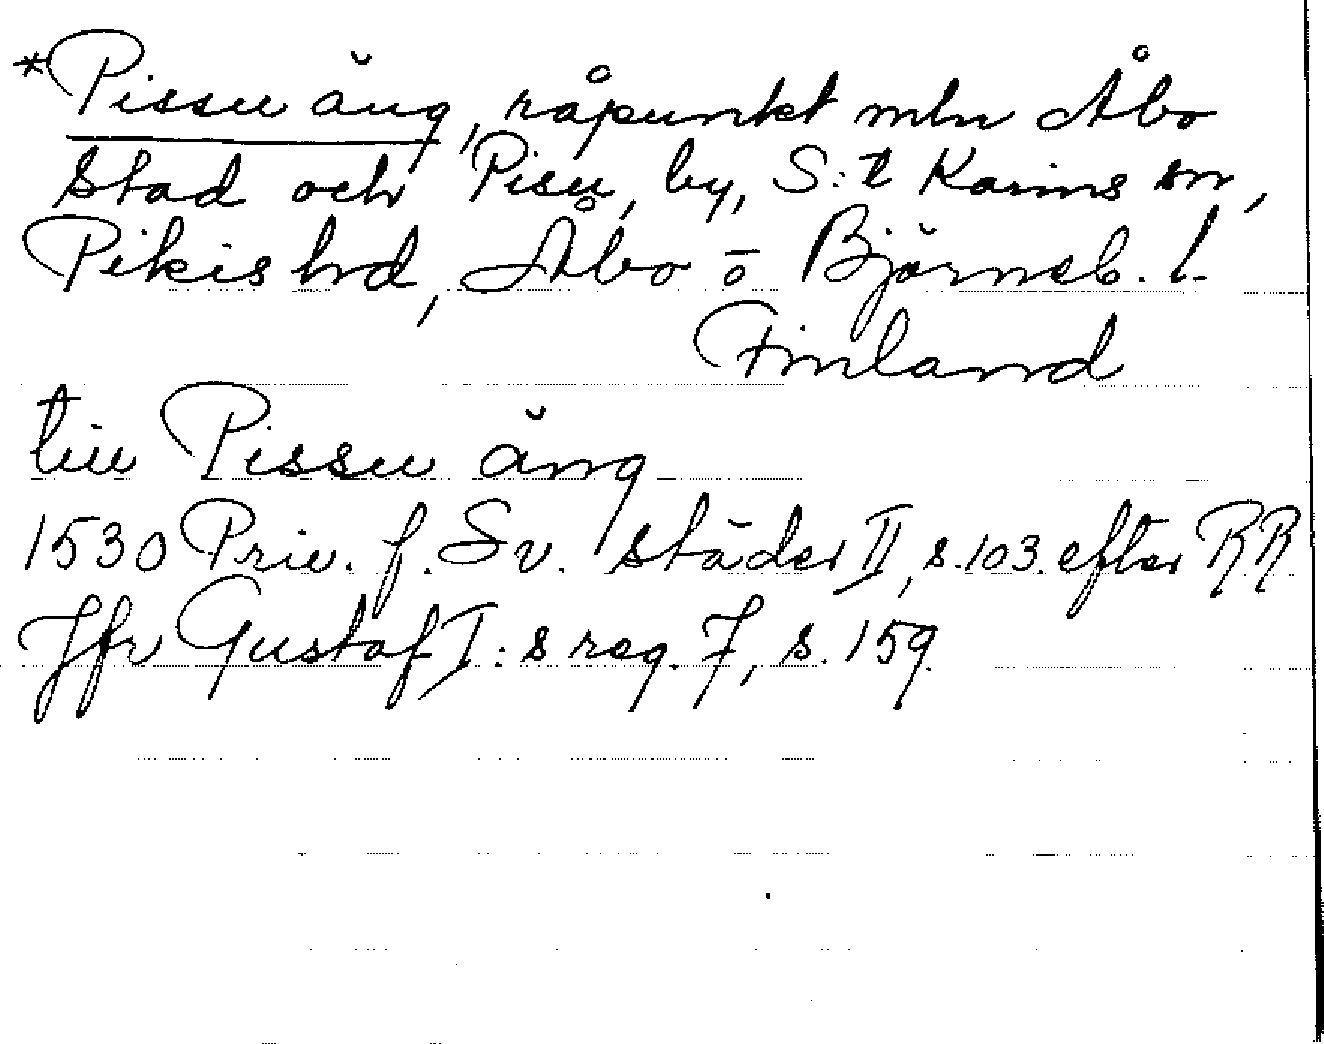 *Pissu äng, råpunkt mln Åbo
stad och Pisu, by, S:t Karins sn,
Pikis hd, Åbo o Björneb. l.
Finland
till Pissu äng
1530 Priv. f. Sv. städer II, s. 103 efter RR
Jfr Gustaf I:s reg. 7, s. 159